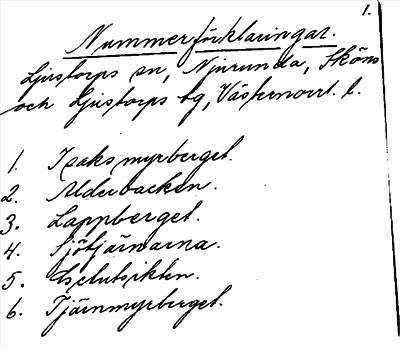 1.
Nummerförklaringar.
Ljustorps sn, Njurunda, Sköns
och Ljustorps tg, Västernorrl. l.
1. Isaksmyrberget.
2. Alderbacken.
3. Lappberget.
4. Sjötjärnarna.
5.
6. Tjärnmyrberget.